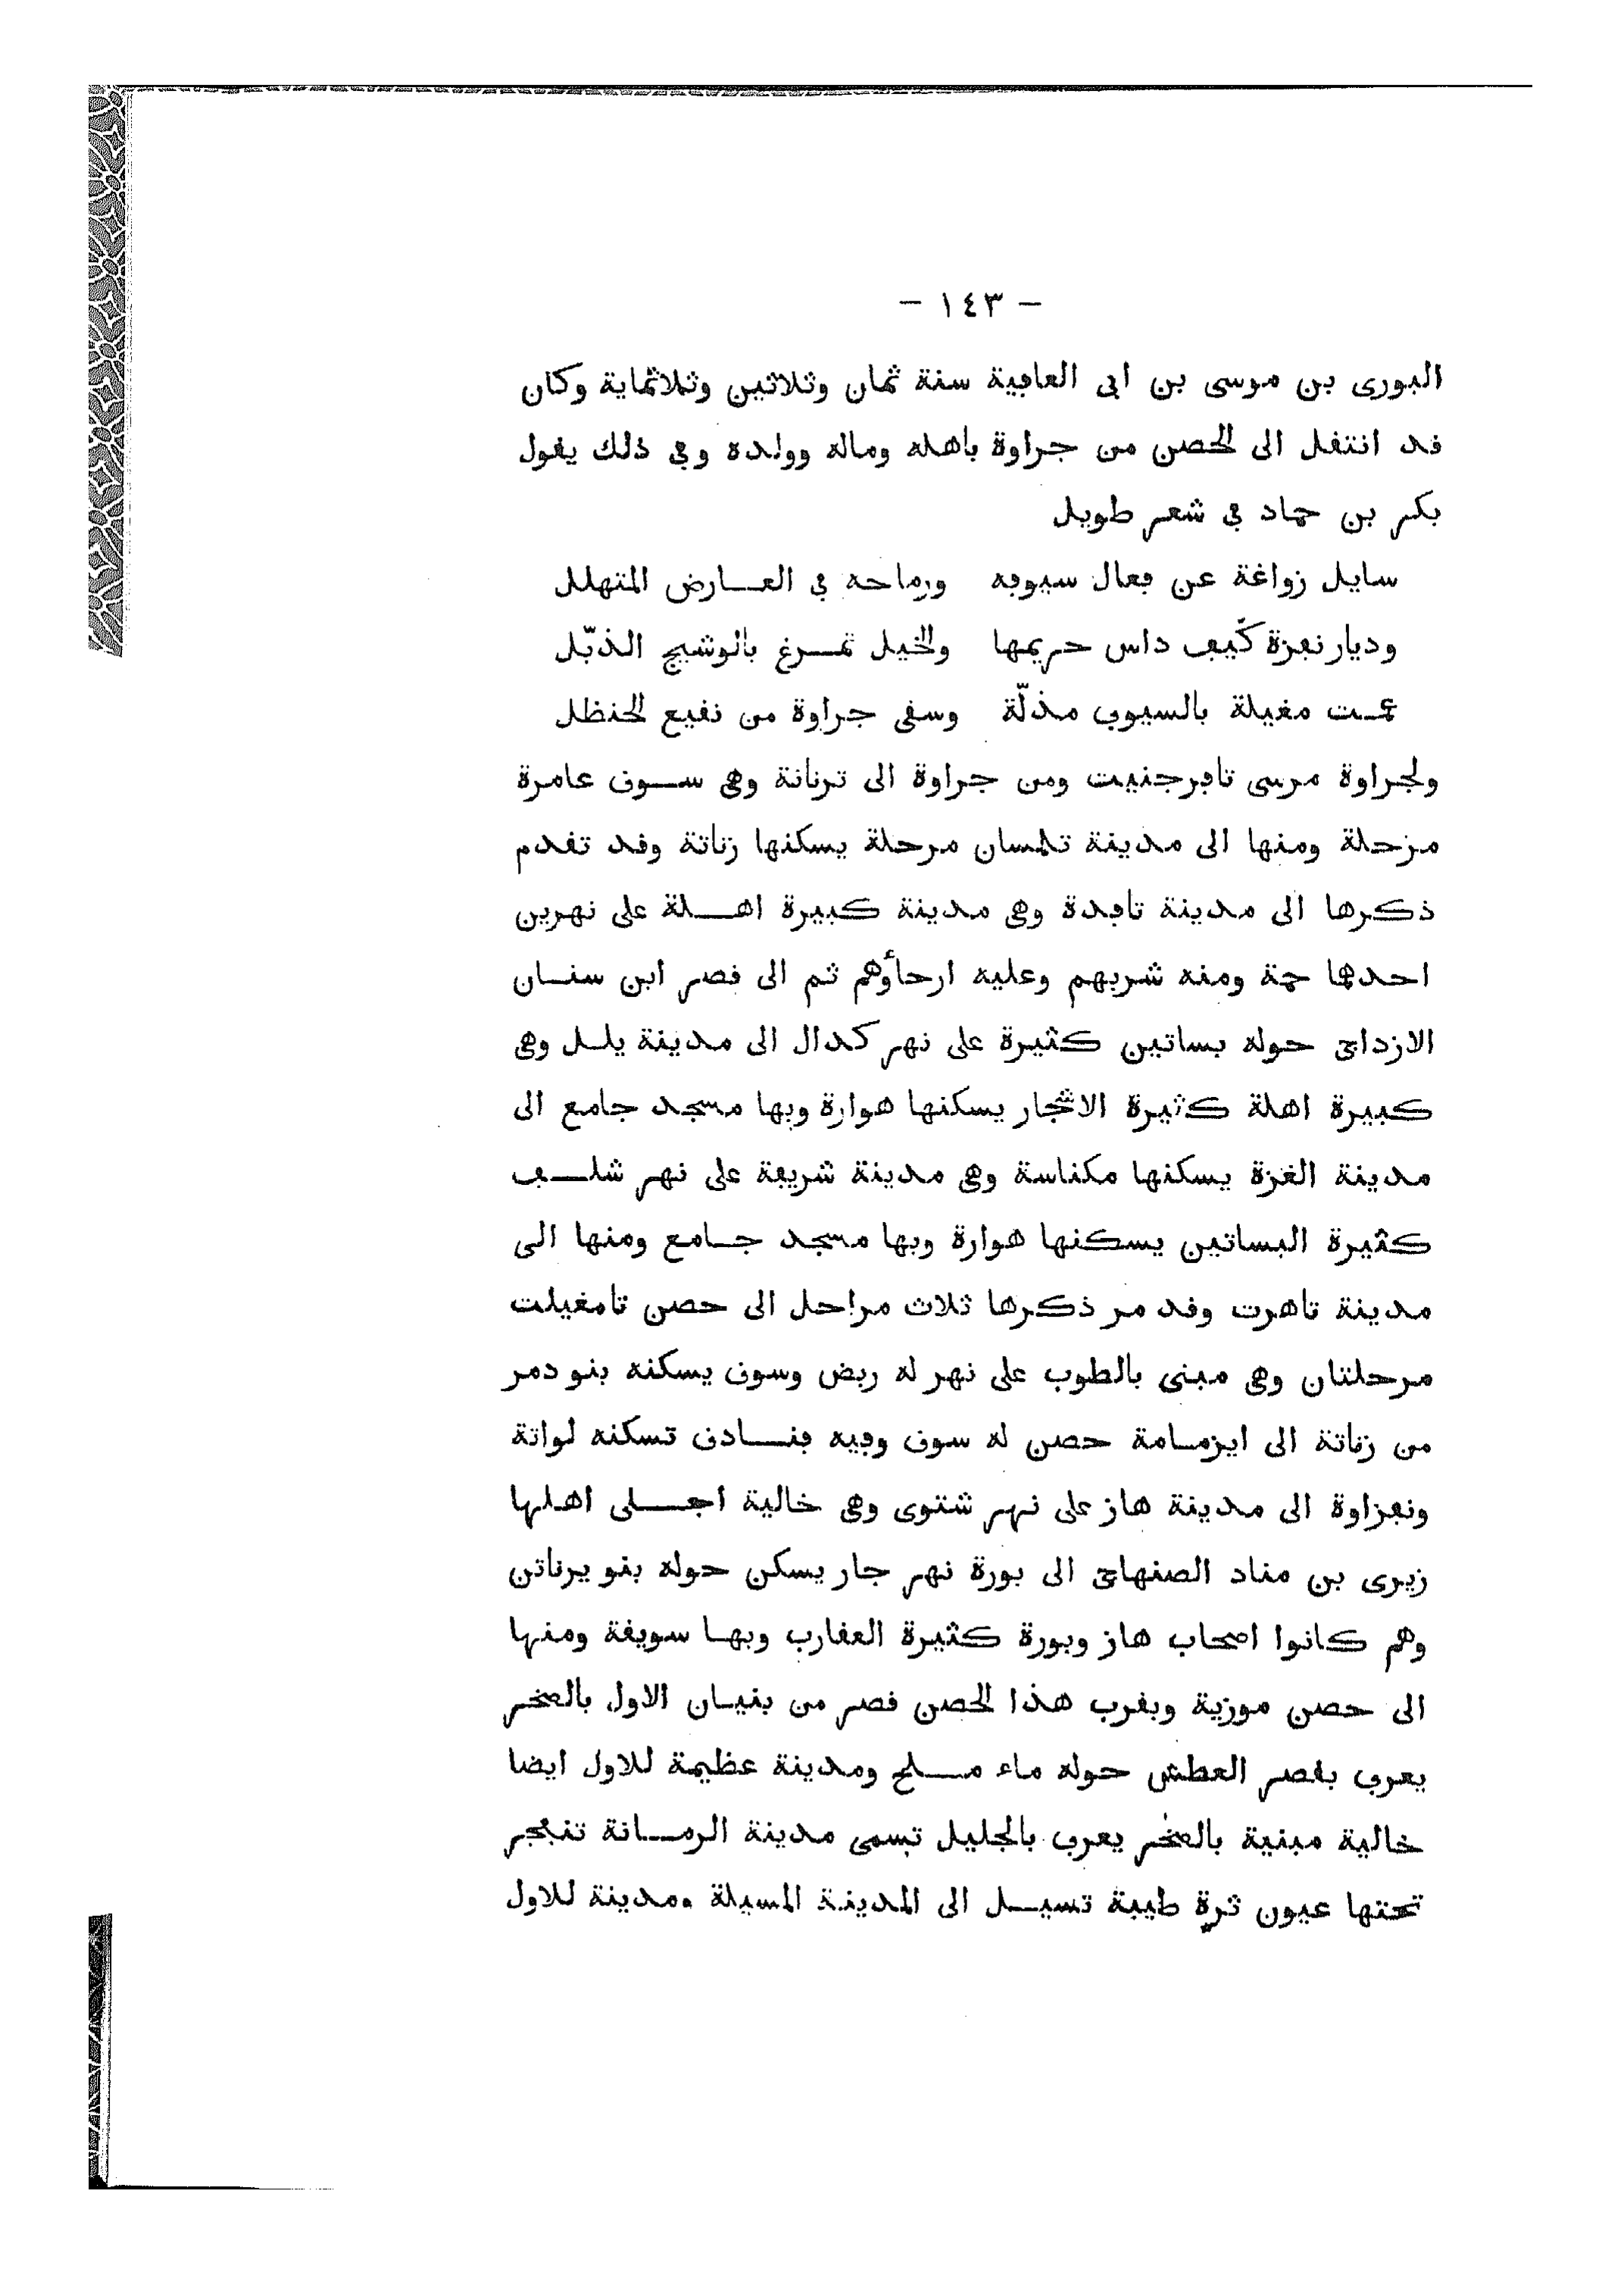 - ١٤٣ -
البورى بن موسى بن ابى العافية سنة ثمان وثلاثين وثلاثماية وكان
قد انتقل الى الحصن من جراوة باهله وماله وولده وفى ذلك يقول
بكر بن حماد فى شعر طويل
سايل زواغة عن فعال سيوفه ورماحه فى العارض المتهلل
وديار نفزة كيف داس حريمها والخيل تمرغ بالوشيج الذبّل
عمت مغيلة بالسيوف مذلّة وسقى جراوة من نقيع الحنظل
ولجراوة مرسى تافرجنيت ومن جراوة الى ترنانة وهى سوق عامرة
مرحلة ومنها الى مدينة تلمسان مرحلة يسكنها زناتة وقد تقدم
ذكرها الى مدينة تافدة وهى مدينة كبيرة اهلة على نهرين
احدهما حمة ومنه شربهم وعليه ارحاؤهم ثم الى قصر ابن سنان
الازداجى حوله بساتين كثيرة على نهر كدال الى مدينة يلل وهى
كبيرة اهلة كثيرة الاشجار يسكنها هوارة وبها مسجد جامع الى
مدينة الغزة يسكنها مكناسة وهى مدينة شريفة على نهر شلف
كثيرة البساتين يسكنها هوارة وبها مسجد جامع ومنها الى
مدينة تاهرت وقد مر ذكرها ثلاث مراحل الى حصن تامغيلت
مرحلتان وهى مبنى بالطوب على نهر له ربض وسوق يسكنه بنو دمر
من زناتة الى ايزمامة حصن له سوق وفيه فنادق تسكنه لواتة
ونفزاوة الى مدينة هاز على نهر شتوى وهى خالية اجلى اهلها
زيرى بن مناد الصنهاجى الى بورة نهر جار يسكن حوله بنو يرناتن
وهم كانوا اصحاب هاز وبورة كثيرة العقارب وبها سويقة ومنها
الى حصن موزية وبقرب هذا الحصن قصر من بنيان الاول بالصخر
يعرف بقصر العطش حوله ماء ملح ومدينة عظيمة للاول ايضا
خالية مبنية بالصخر يعرف بالجليل تسمى مدينة الرمانة تنفجر
تحتها عيون ثرة طيبة تسيل الى المدينة المسيلة ومدينة للاول